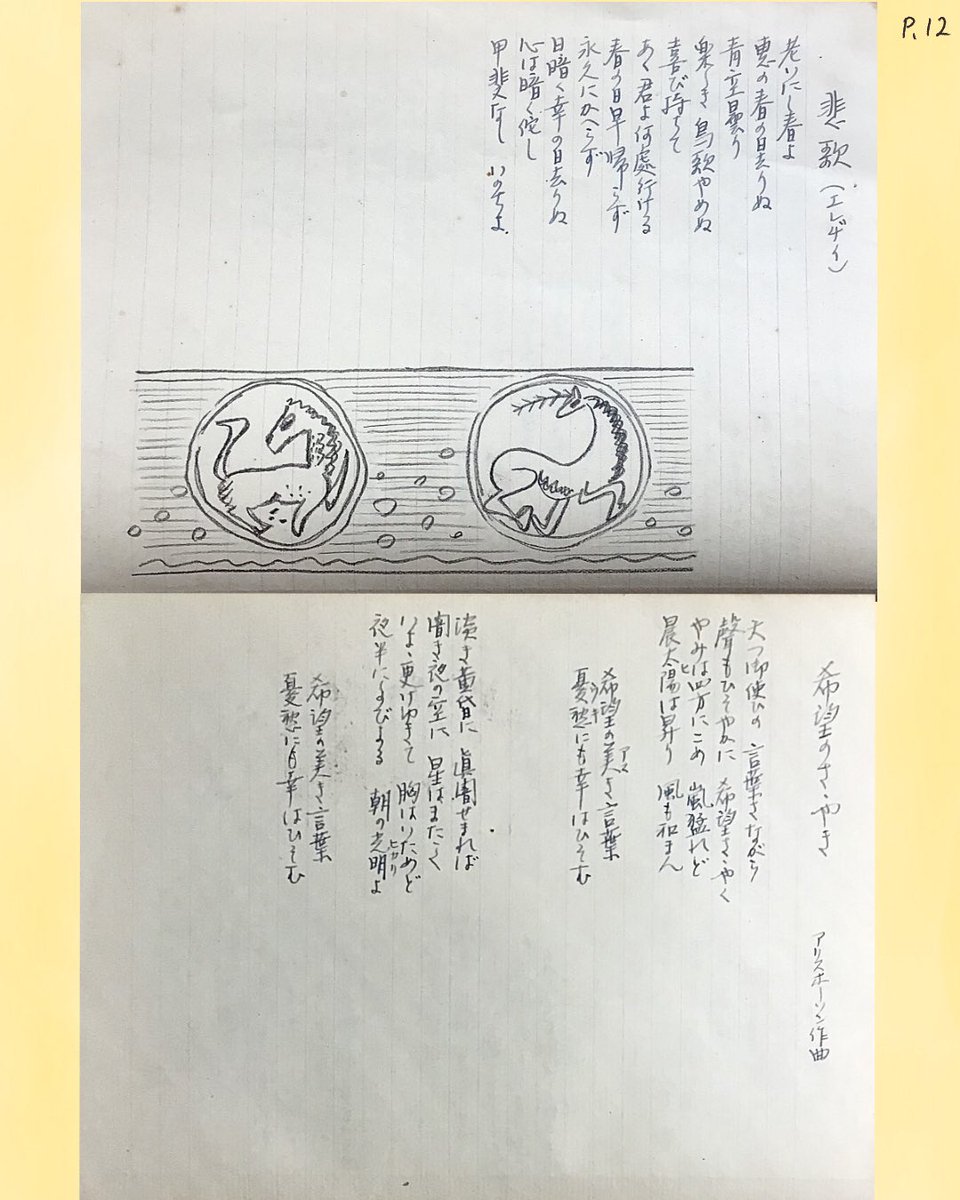 P.12
悲歌(エレヂイ)
老いにし春よ
恵の春の日去りぬ
青空曇り
楽しき鳥歌やめぬ
喜び持ちて
あゝ君よ何處行ける
春の日早帰らず
永久にかへらず
日暗く幸の日去りぬ
心は暗く侘し
甲斐なし いのちよ
希望のさゝやき アリスホーソン作曲
天つ御使ひの 言葉さながら
聲もひそやかに 希望さゝやく
やみは四方にこめ 嵐猛れど
晨太陽は昇り 風も和まん
ヒ
希望の美き言葉
アマ
憂愁にも幸はひそむ
ウキ
淡き黄昏に 眞闇せまれば
闇き夜の空に 星はまたゝく
いよゝ更けゆきて 胸はいためど
夜半にしのびよる 朝の光明よ
ヒカリ
希望の美き言葉
憂愁にも幸はひそむ